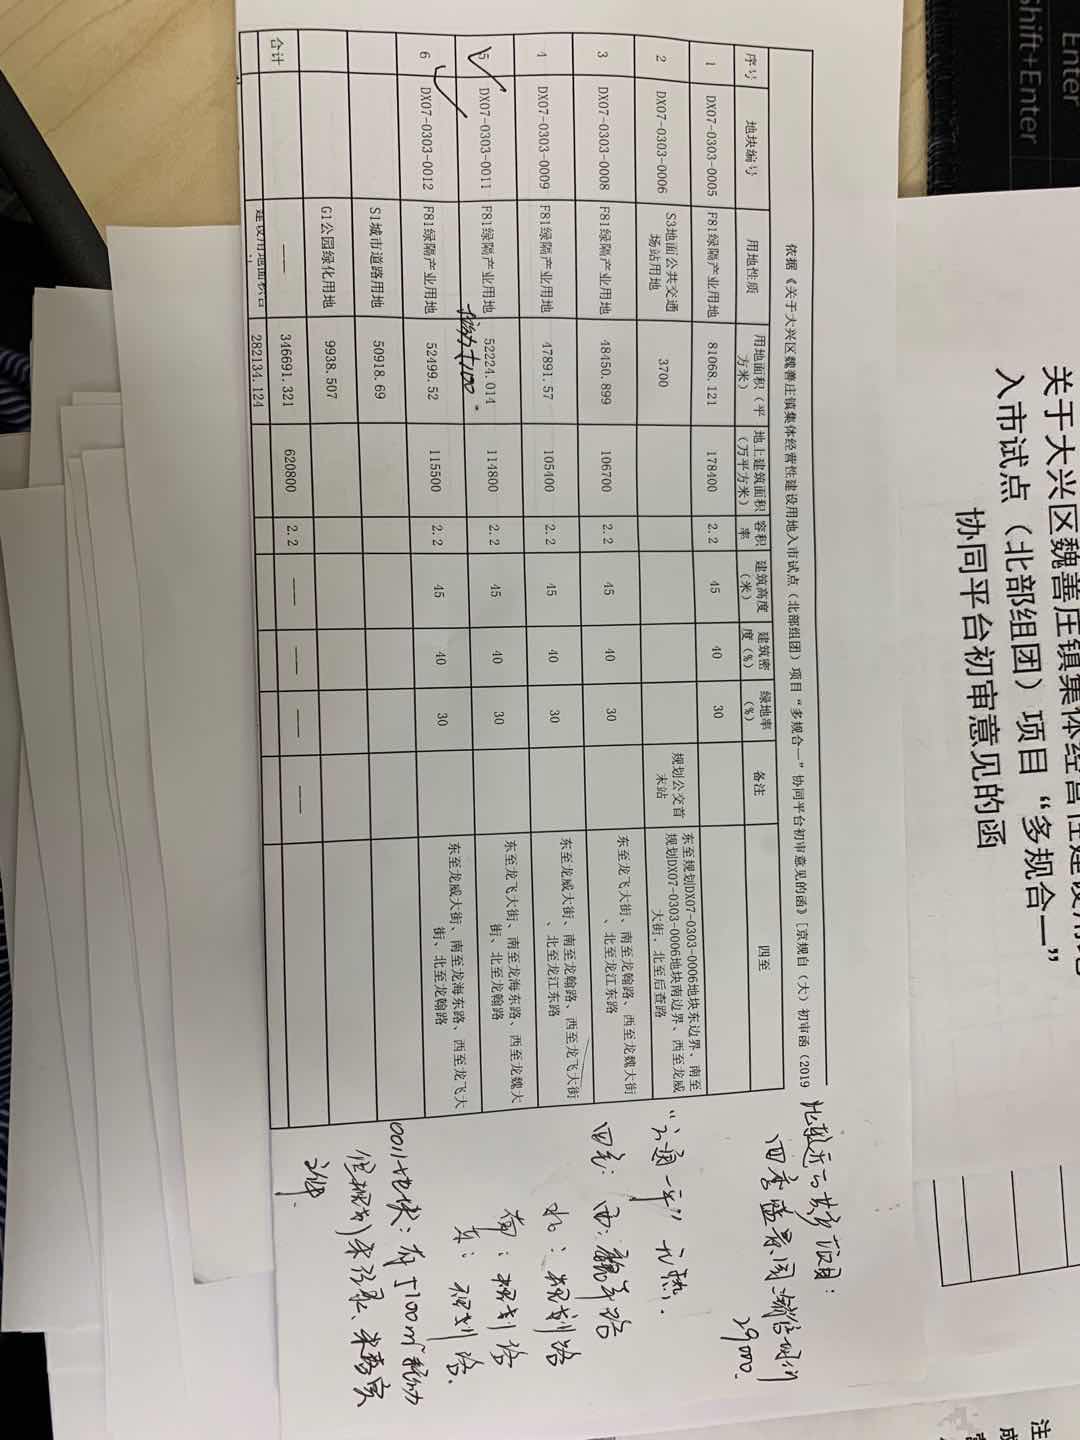 关于大兴区魏善庄镇集体经营性建设用地
入市试点（北部组团）项目“多规合一”
协同平台初审意见的函
依据《关于大兴区魏善庄镇集体经营性建设用地入市试点（北部组团）项目“多规合一”协同平台初审意见的函》[京规自（大）初审函（2019
序号 地块编号 用地性质 用地面积（平方米） 地上建筑面积（万平方米） 容积率 建筑高度（米） 建筑密度（%） 绿地率（%） 备注 四至
1 DX07-0303-0005 F81绿隔产业用地 81068.121 178400 2.2 45 40 30
2 DX07-0303-0006 S3地面公共交通场站用地 3700 规划公交首末站 东至规划DX07-0303-0006地块东边界、南至规划DX07-0303-0006地块南边界、西至龙威大街、北至后查路
3 DX07-0303-0008 F81绿隔产业用地 48450.899 106700 2.2 45 40 30 东至龙飞大街、南至龙翰路、西至龙魏大街、北至龙江东路
4 DX07-0303-0009 F81绿隔产业用地 47891.57 105400 2.2 45 40 30 东至龙威大街、南至龙翰路、西至龙飞大街、北至龙江东路
5 DX07-0303-0011 F81绿隔产业用地 52224.014 114800 2.2 45 40 30 东至龙飞大街、南至龙海东路、西至龙魏大街、北至龙翰路
6 DX07-0303-0012 F81绿隔产业用地 52499.52 115500 2.2 45 40 30 东至龙威大街、南至龙海东路、西至龙飞大街、北至龙翰路
S1城市道路用地 50918.69
G1公园绿化用地 9938.507
合计 —— 346691.321 620800 2.2 —— —— —— ——
建设用地面积合计 282134.124
项目：
29000.
“三通一平” 无热.
四至： 西：魏永路
北：规划路
南：规划路
东：规划路.
0011地块：有5100㎡
Enter
Shift+Enter
注
成